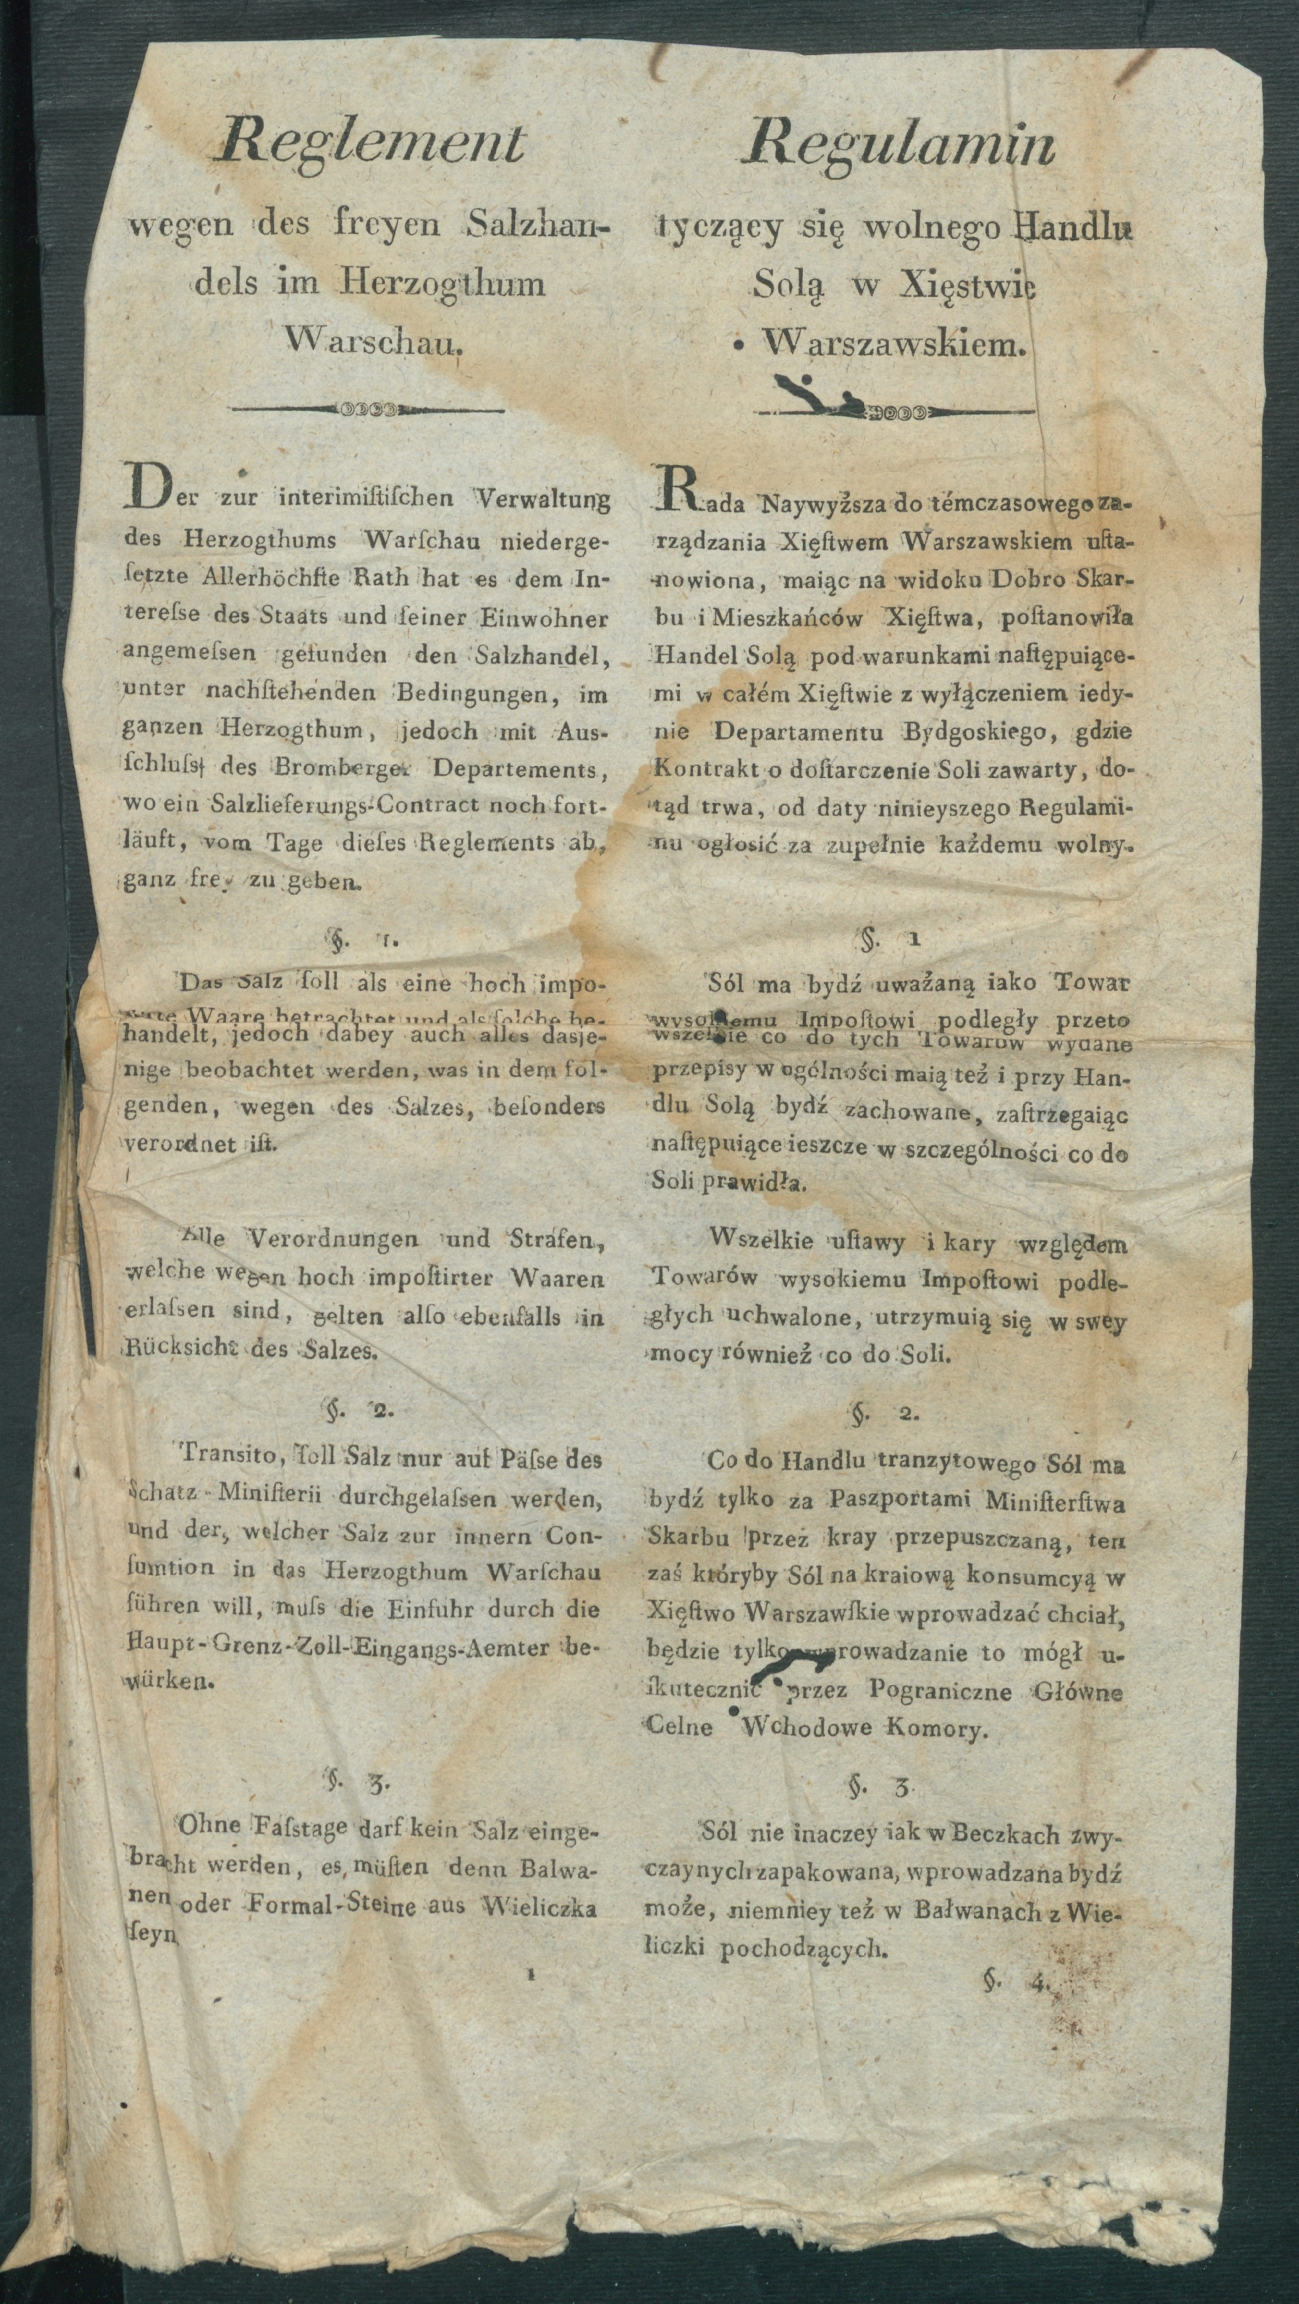 Reglement
wegen des freyen Salzhan-
dels im Herzogthum
Warschau.
Der zur interimiſtiſchen Verwaltung
des Herzogthums Warſchau niederge-
ſetzte Allerhöchſte Rath hat es dem In-
tereſse des Staats und ſeiner Einwohner
angemeſsen gefunden den Salzhandel,
unter nachſtehenden Bedingungen, im
ganzen Herzogthum, jedoch mit Aus-
ſchluſs des Bromberger Departements,
wo ein Salzlieferungs-Contract noch fort-
läuft, vom Tage dieſes Reglements ab,
ganz frey zu geben.
§. 1.
Das Salz ſoll als eine hoch impo-
Waare betrachtet und als ſolche be-
handelt, jedoch dabey auch alles dasje-
nige beobachtet werden, was in dem fol-
genden, wegen des Salzes, beſonders
verordnet iſt.
Alle Verordnungen und Strafen,
welche wegen hoch impoſtirter Waaren
erlaſsen sind, gelten alſo ebenfalls in
Rücksicht des Salzes.
§. 2.
Transito, ſoll Salz nur auf Päſse des
Schatz-Miniſterii durchgelaſsen werden,
und der, welcher Salz zur innern Con-
ſumtion in das Herzogthum Warſchau
führen will, muſs die Einfuhr durch die
Haupt-Grenz-Zoll-Eingangs-Aemter be-
würken.
§. 3.
Ohne Faſstage darf kein Salz einge-
bracht werden, es müſten denn Balwa-
nen oder Formal-Steine aus Wieliczka
ſeyn
1
Regulamin
tyczący się wolnego Handlu
Solą w Xięstwie
Warszawskiem.
Rada Naywyższa do témczasowego za-
rządzania Xięſtwem Warszawskiem uſta-
nowiona, maiąc na widoku Dobro Skar-
bu i Mieszkańców Xięſtwa, poſtanowiła
Handel Solą pod warunkami naſtępuiące-
mi w całém Xięſtwie z wyłączeniem iedy-
nie Departamentu Bydgoskiego, gdzie
Kontrakt o doſtarczenie Soli zawarty, do-
tąd trwa, od daty ninieyszego Regulami-
nu ogłosić za zupełnie każdemu wolny.
§. 1
Sól ma bydź uważaną iako Towar
wysokiemu Impoſtowi podległy przeto
wszelkie co do tych Towarów wydane
przepisy w ogólności maią też i przy Han-
dlu Solą bydź zachowane, zaſtrzegaiąc
naſtępuiące ieszcze w szczególności co do
Soli prawidła.
Wszelkie uſtawy i kary względem
Towarów wysokiemu Impoſtowi podle-
głych uchwalone, utrzymuią się w swey
mocy również co do Soli.
§. 2.
Co do Handlu tranzytowego Sól ma
bydź tylko za Paszportami Miniſterſtwa
Skarbu przez kray przepuszczaną, ten
zaś któryby Sól na kraiową konsumcyą w
Xięſtwo Warszawſkie wprowadzać chciał,
będzie tylko wprowadzanie to mógł u-
ſkutecznić przez Pograniczne Główne
Celne Wchodowe Komory.
§. 3
Sól nie inaczey iak w Beczkach zwy-
czaynych zapakowana, wprowadzana bydź
może, niemniey też w Bałwanach z Wie-
liczki pochodzących.
§. 4.